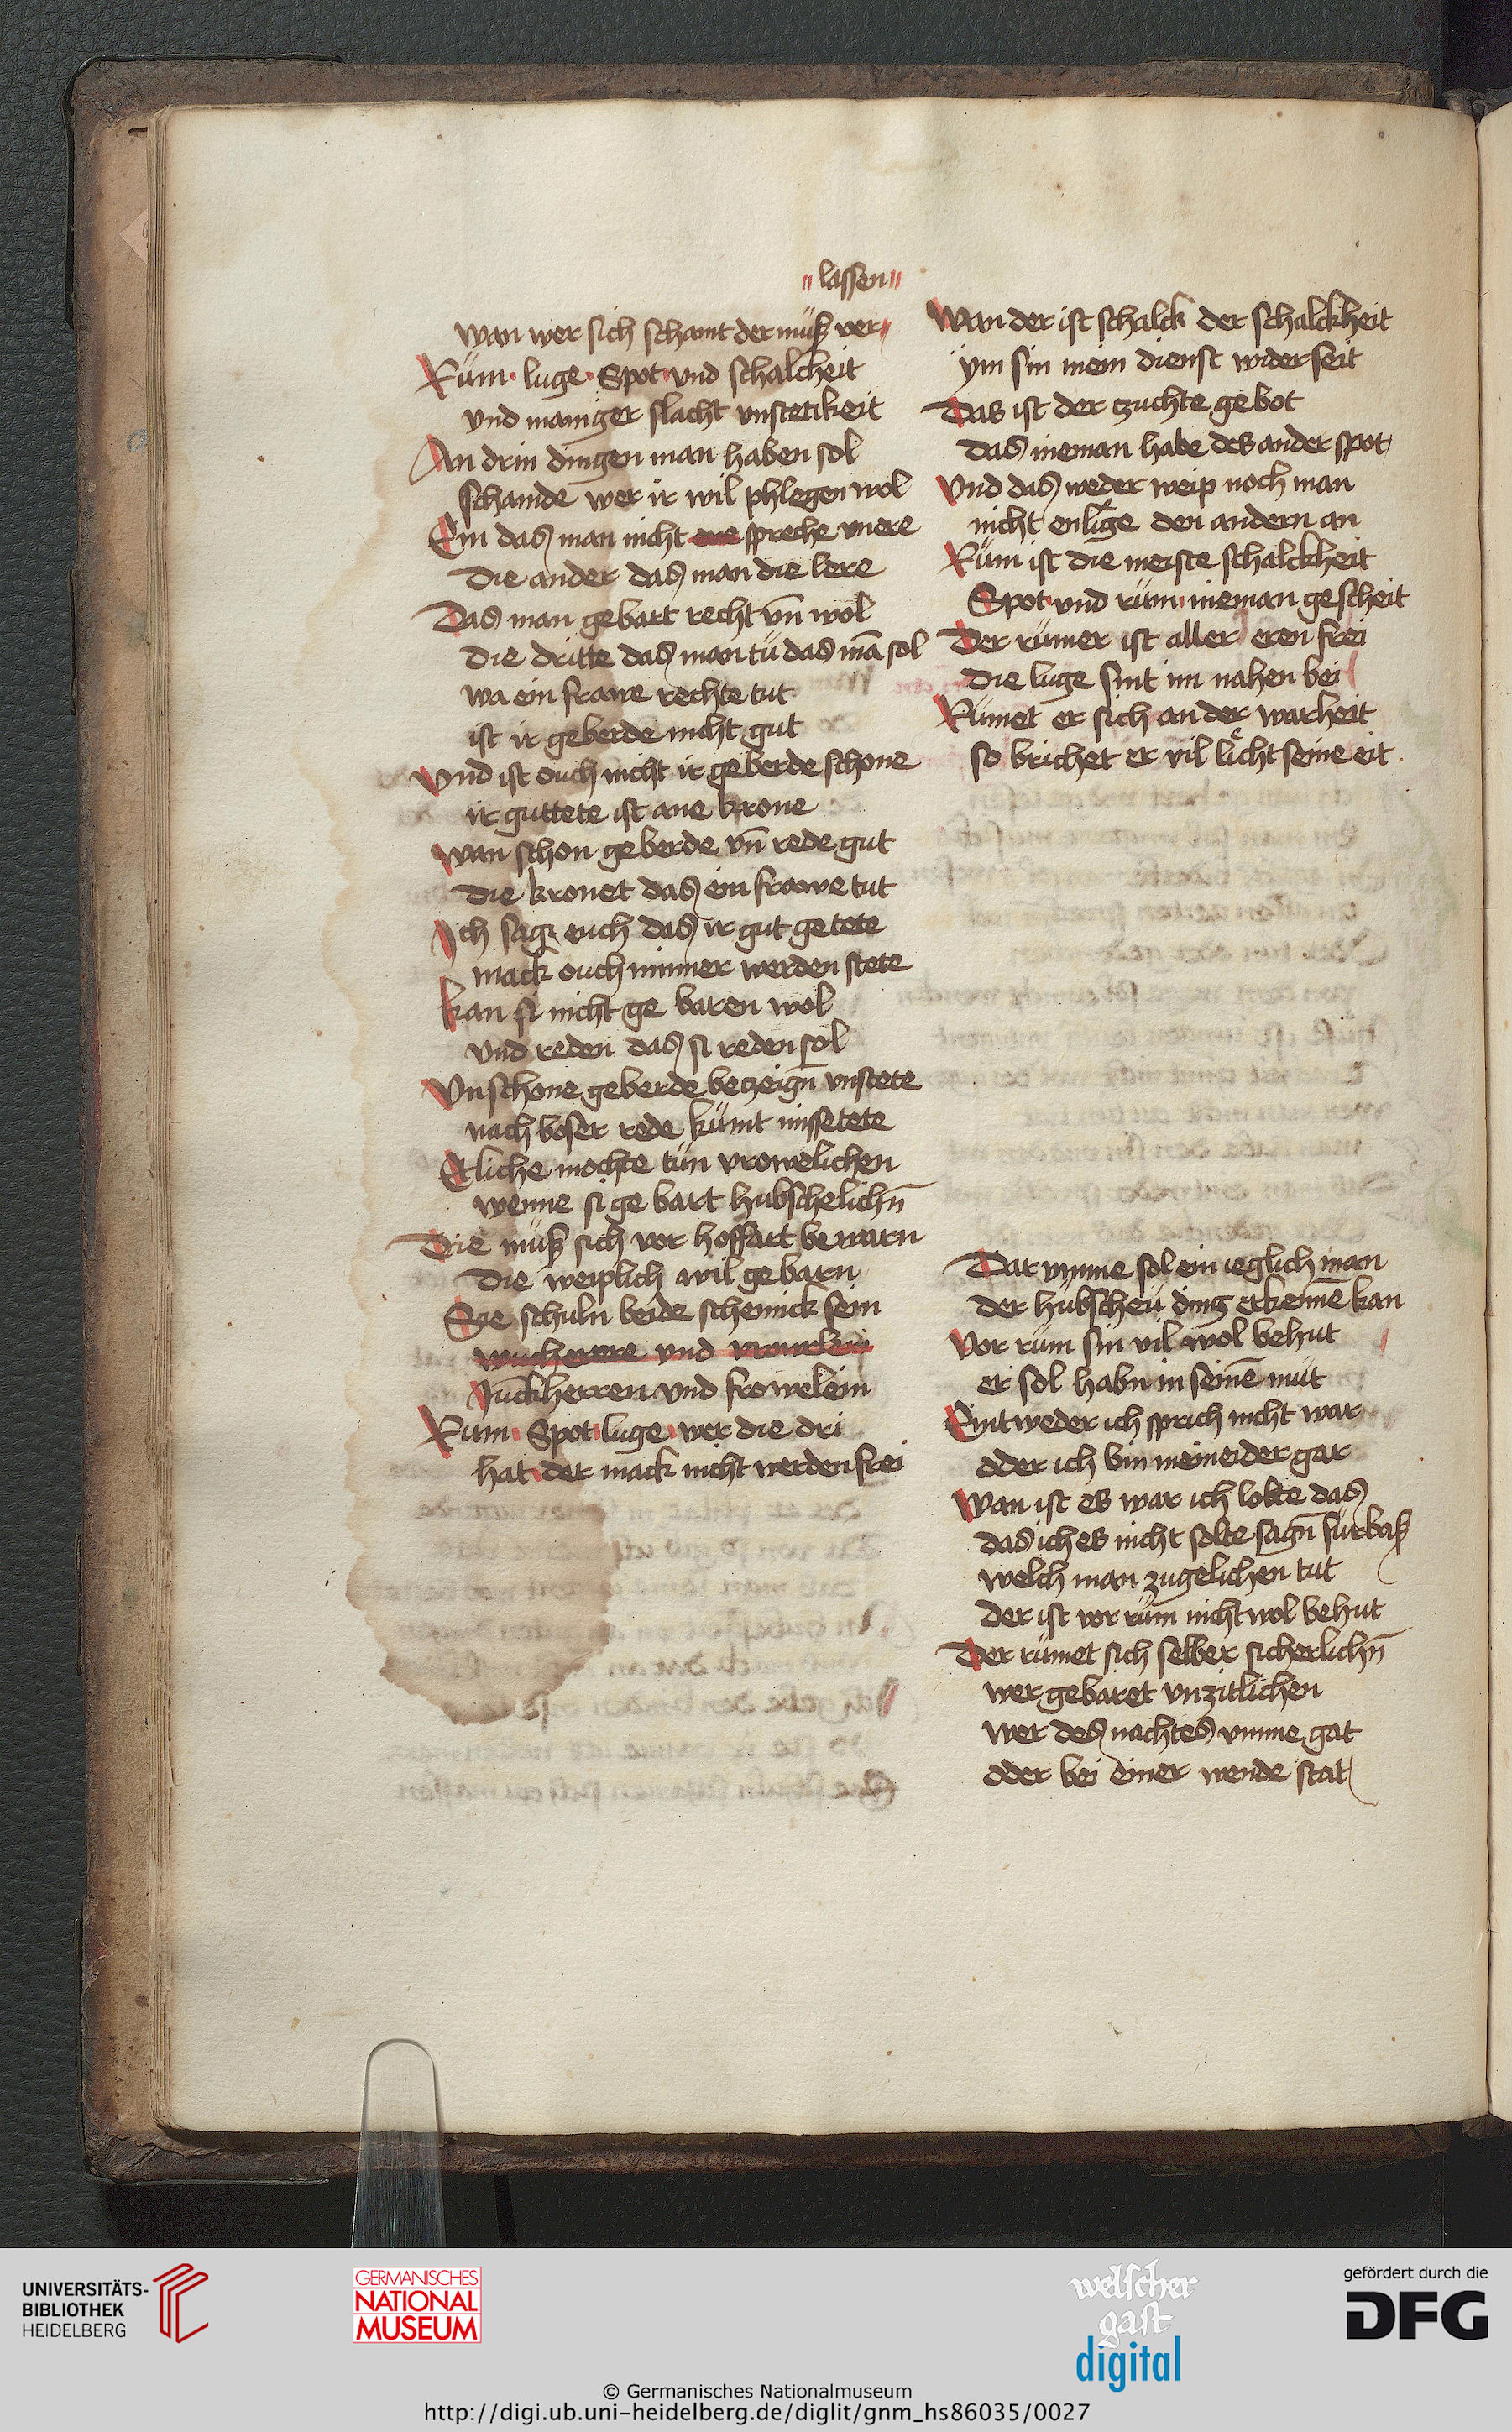 lassen
wan wer sich schamt der muͤß ver
Ruͤm luge Spot vnd schalcheit
vnd maniger slacht vnstetikeit
An drin dingen man haben sol
schamde wer ir wil phlegen wol
Ein das man nicht ene spreche vnere
die ander das man die lere
Das man gebart recht vn̄ wol
die dritte das man tuͤ das mā sol
wa ein frawe rechte tut
ist ir geberde nicht gut
Vnd ist ouch nicht ir geberde schone
ir guttete ist ane krone
wan schon geberde vn̄ rede gut
die kronet das ein frowe tut
Ich sage euch das ir gut getete
mack ouch nimmer werden stete
kan si nicht ge baren wol
vnd reden das si reden sol
Vnschone geberde betzeign̄ vnstete
nach boser rede kuͤmt missetete
Etliche mochte tuͤn vrowelichen
wenne si ge bart hubschelichn̄
Die muͤß sich vor hoffart bewarn
die weiplich wil gebarn
Sie schuln beide schemick sein
wucherere vnd vrowelein
Juckherren vnd frowelein
Rum Spot luge wer die dri
hat der mack nicht werden frei
Wan der ist schalck der schalckheit
ym sin mein dienst wider seit
Das ist der tzuchte gebot
das nieman habe des ander spot
Vnd das weder weip noch man
nicht enlige den andern an
Ruͤm ist die meiste schalckheit
Spot vnd ruͤm nieman gescheit
Der ruͤmer ist aller eren frei
die luge sint im nahen bei
Ruͤmet er sich an der warheit
so brichet er vil licht seine eit
Dar vmme sol ein ieglich man
der huͤbscheu ding erkennē kan
Vor ruͤm sin vil wol behut
er sol habn in seinē muͤt
Eintweder ich sprich nicht war
oder ich bin meineider gar
Wan ist es war ich lobte das
das ich es nicht solte sagn̄ fuͤrbaß
welch man zugelichen tut
der ist vor ruͤm nicht wol behut
Der ruͤmet sich selber sicherlichn̄
wer gebaret vnzitlichen
wer des nachtes vmme gat
oder bei einer wende stat
UNIVERSITÄTS-
BIBLIOTHEK
HEIDELBERG
GERMANISCHES
NATIONAL
MUSEUM
welscher
gast
digital
gefördert durch die
DFG
© Germanisches Nationalmuseum
http://digi.ub.uni-heidelberg.de/diglit/gnm_hs86035/0027